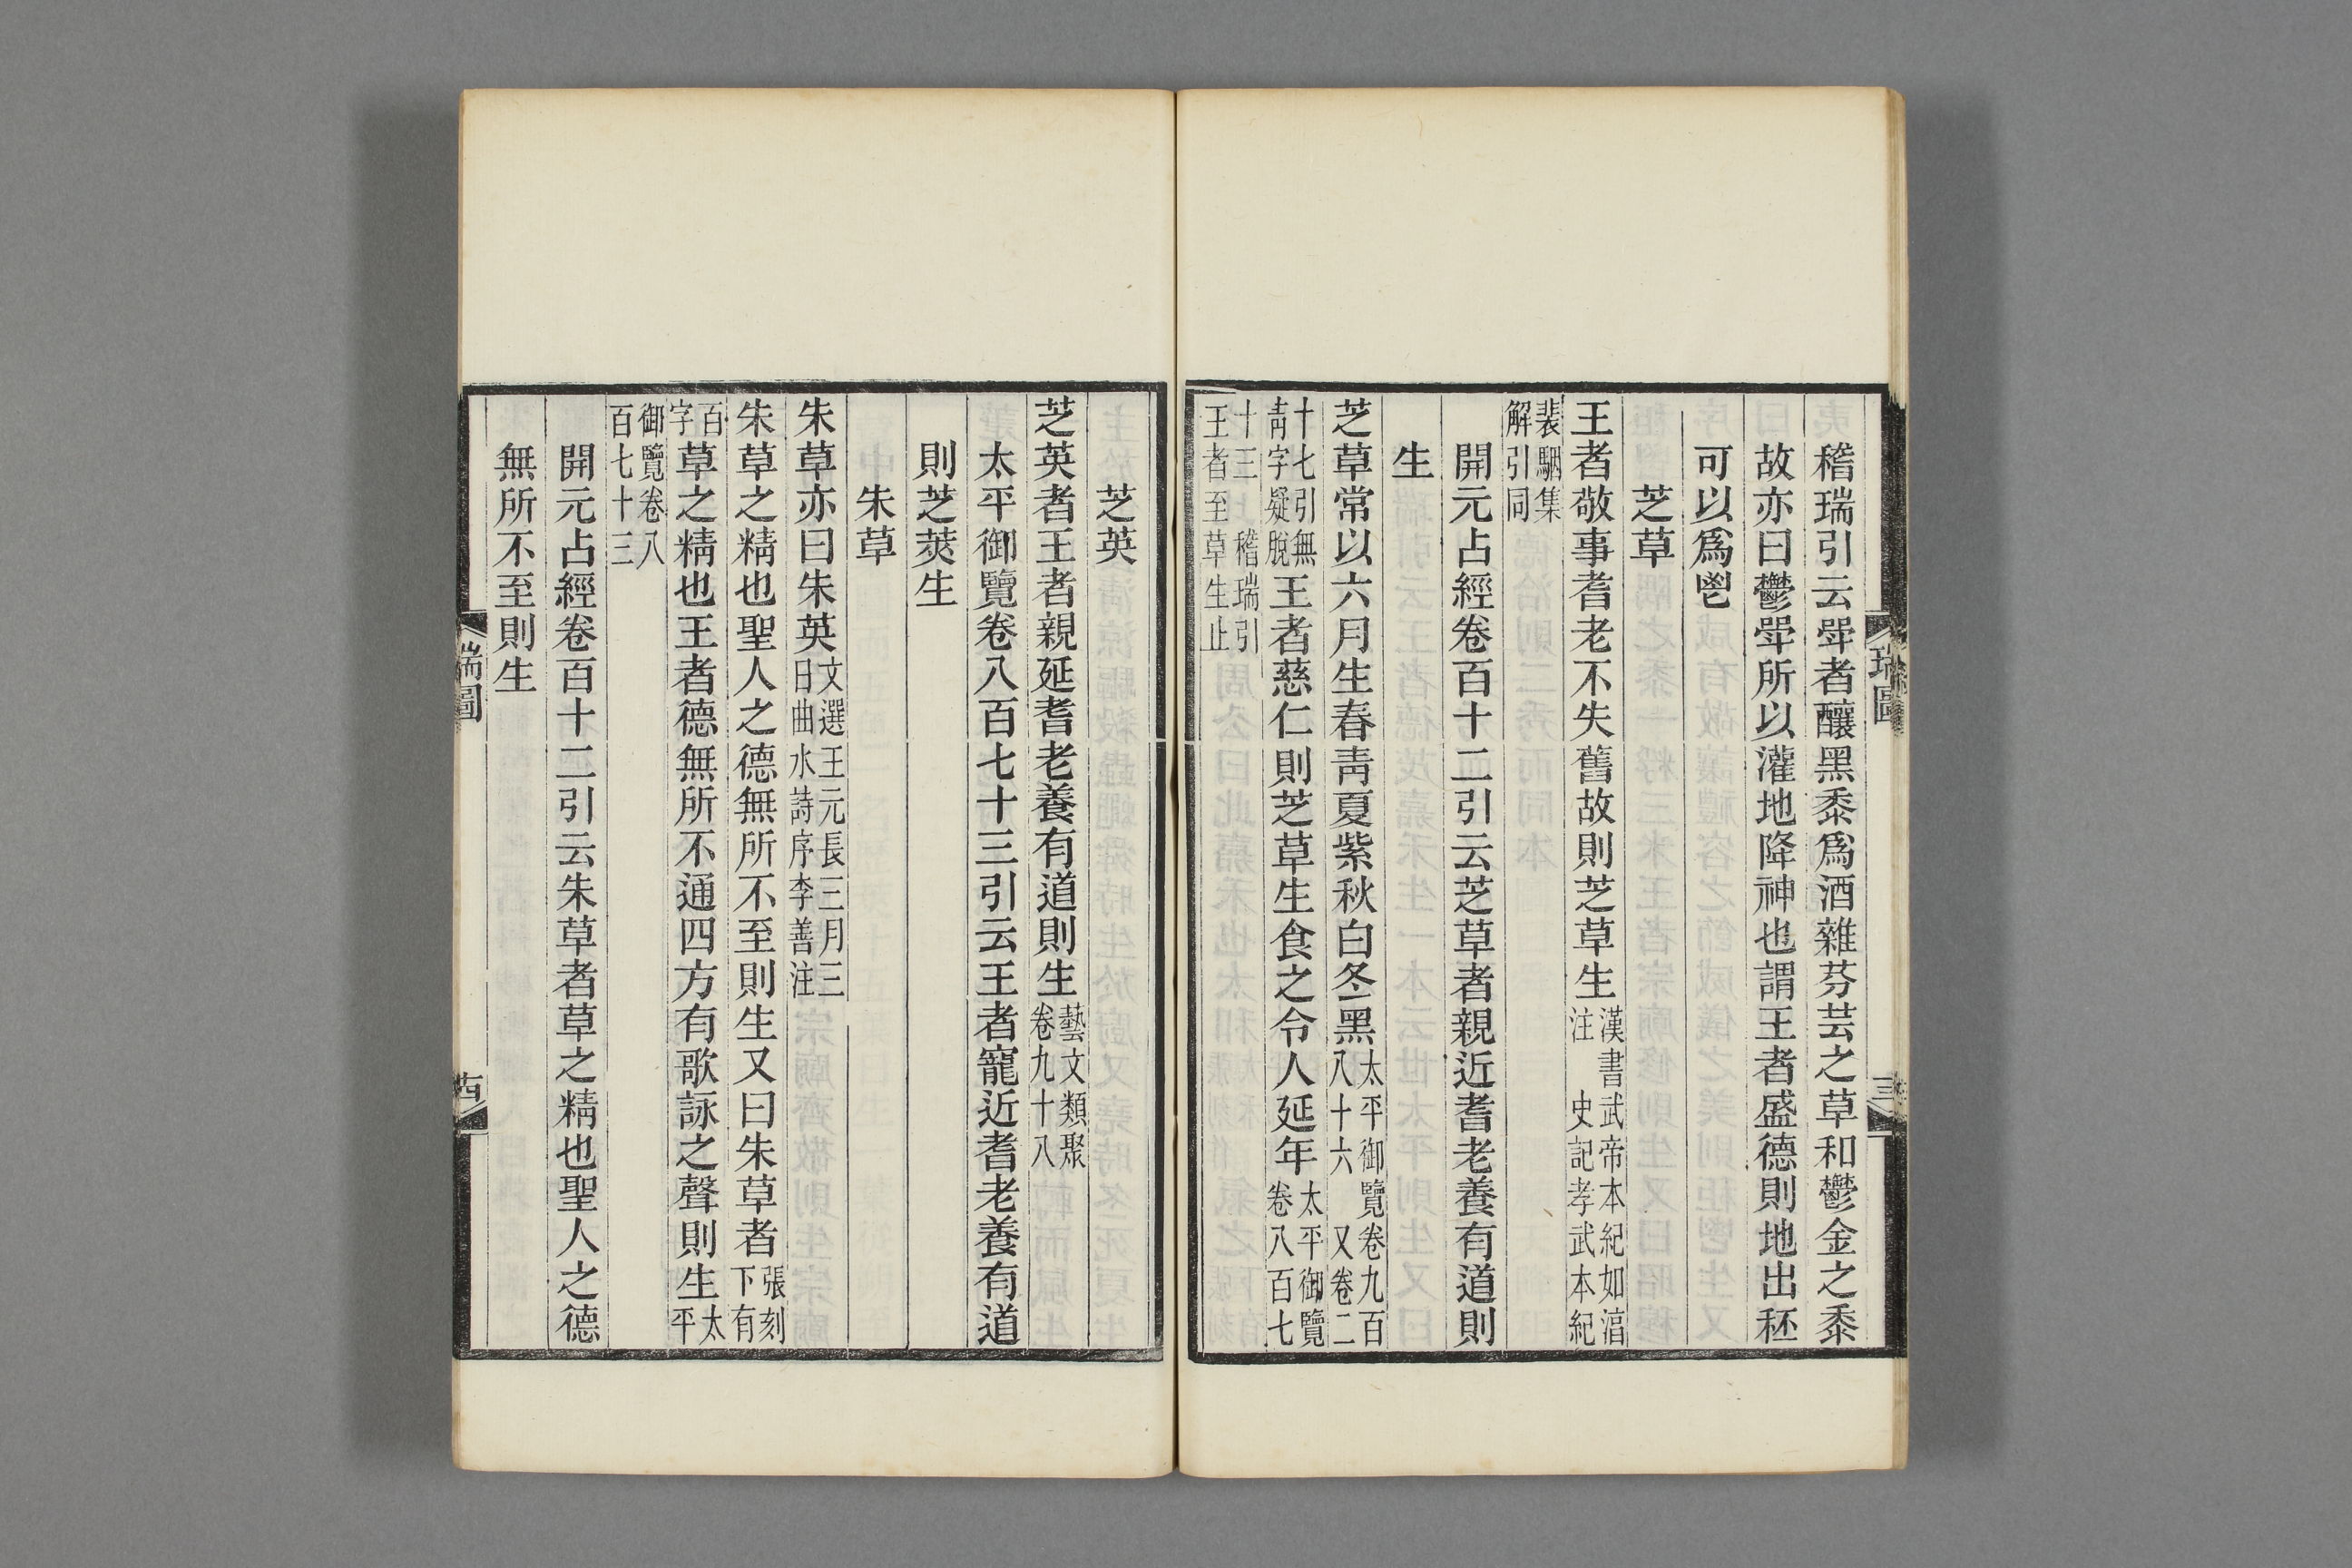 稽瑞引云斝者釀黑黍爲酒雜芬芸之草和鬱金之黍
故亦曰鬱斝所以灌地降神也謂王者盛德則地出秠
可以爲鬯
芝草
王者敬事耆老不失舊故則芝草生漢書武帝本紀如湻注 史記孝武本紀
裴駰集解引同
開元占經卷百十二引云芝草者親近耆老養有道則
生
芝草常以六月生春靑夏紫秋白冬黑太平御覽卷九百八十六 又卷二
十七引無靑字疑脫王者慈仁則芝草生食之令人延年太平御覽卷八百七
十三 稽瑞引王者至草生止
瑞圖
芝英
芝英者王者親延耆老養有道則生藝文類聚卷九十八
太平御覽卷八百七十三引云王者寵近耆老養有道
則芝莢生
朱草
朱草亦曰朱英文選王元長三月三日曲水詩序李善注
朱草之精也聖人之德無所不至則生又曰朱草者張刻下有
百字草之精也王者德無所不通四方有歌詠之聲則生太平
御覽卷八百七十三
開元占經卷百十二引云朱草者草之精也聖人之德
無所不至則生
瑞圖